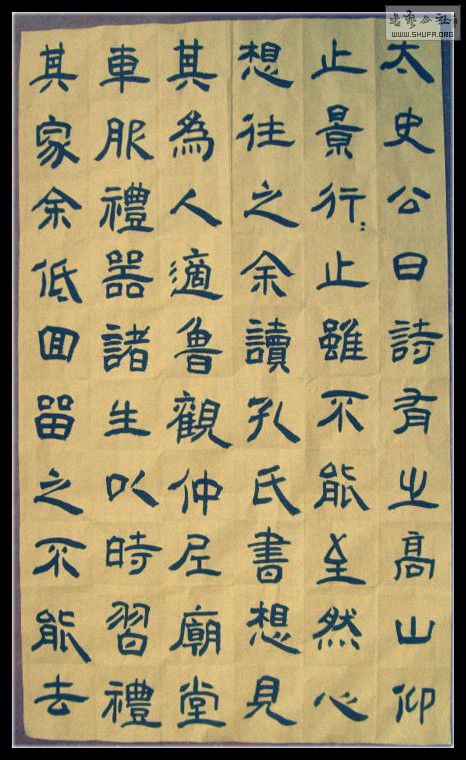 太史公曰詩有之高山仰
止景行：止雖不能至然心
想往之余讀孔氏書想見
其為人適魯觀仲尼廟堂
車服禮器諸生以時習禮
其家余低囬留之不能去
書藝公社
WWW.SHUFA.ORG